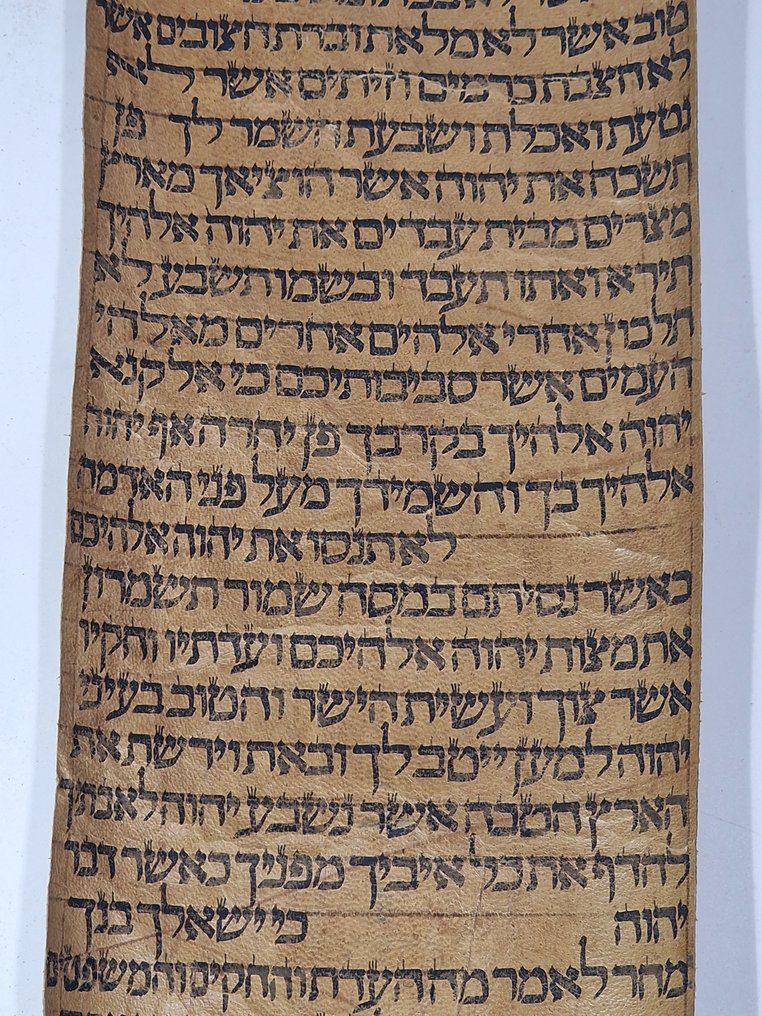 טוב אשר לא מלאת וברת חצובים אשר
לא חצבת כרמים וזיתים אשר לא
נטעת ואכלת ושבעת השמר לך פן
תשכח את יהוה אשר הוציאך מארץ
מצרים מבית עבדים את יהוה אלהיך
תירא ואתו תעבד ובשמו תשבע לא
תלכון אחרי אלהים אחרים מאלהי
העמים אשר סביבותיכם כי אל קנא
יהוה אלהיך בקרבך פן יחרה אף יהוה
אלהיך בך והשמידך מעל פני האדמה
לא תנסו את יהוה אלהיכם
כאשר נסיתם במסה שמור תשמרון
את מצות יהוה אלהיכם ועדתיו וחקיו
אשר צוך ועשית הישר והטוב בעיני
יהוה למען ייטב לך ובאת וירשת את
הארץ הטבה אשר נשבע יהוה לאבתיך
להדף את כל איביך מפניך כאשר דבר
יהוה כי ישאלך בנך
מחר לאמר מה העדת והחקים והמשפטים